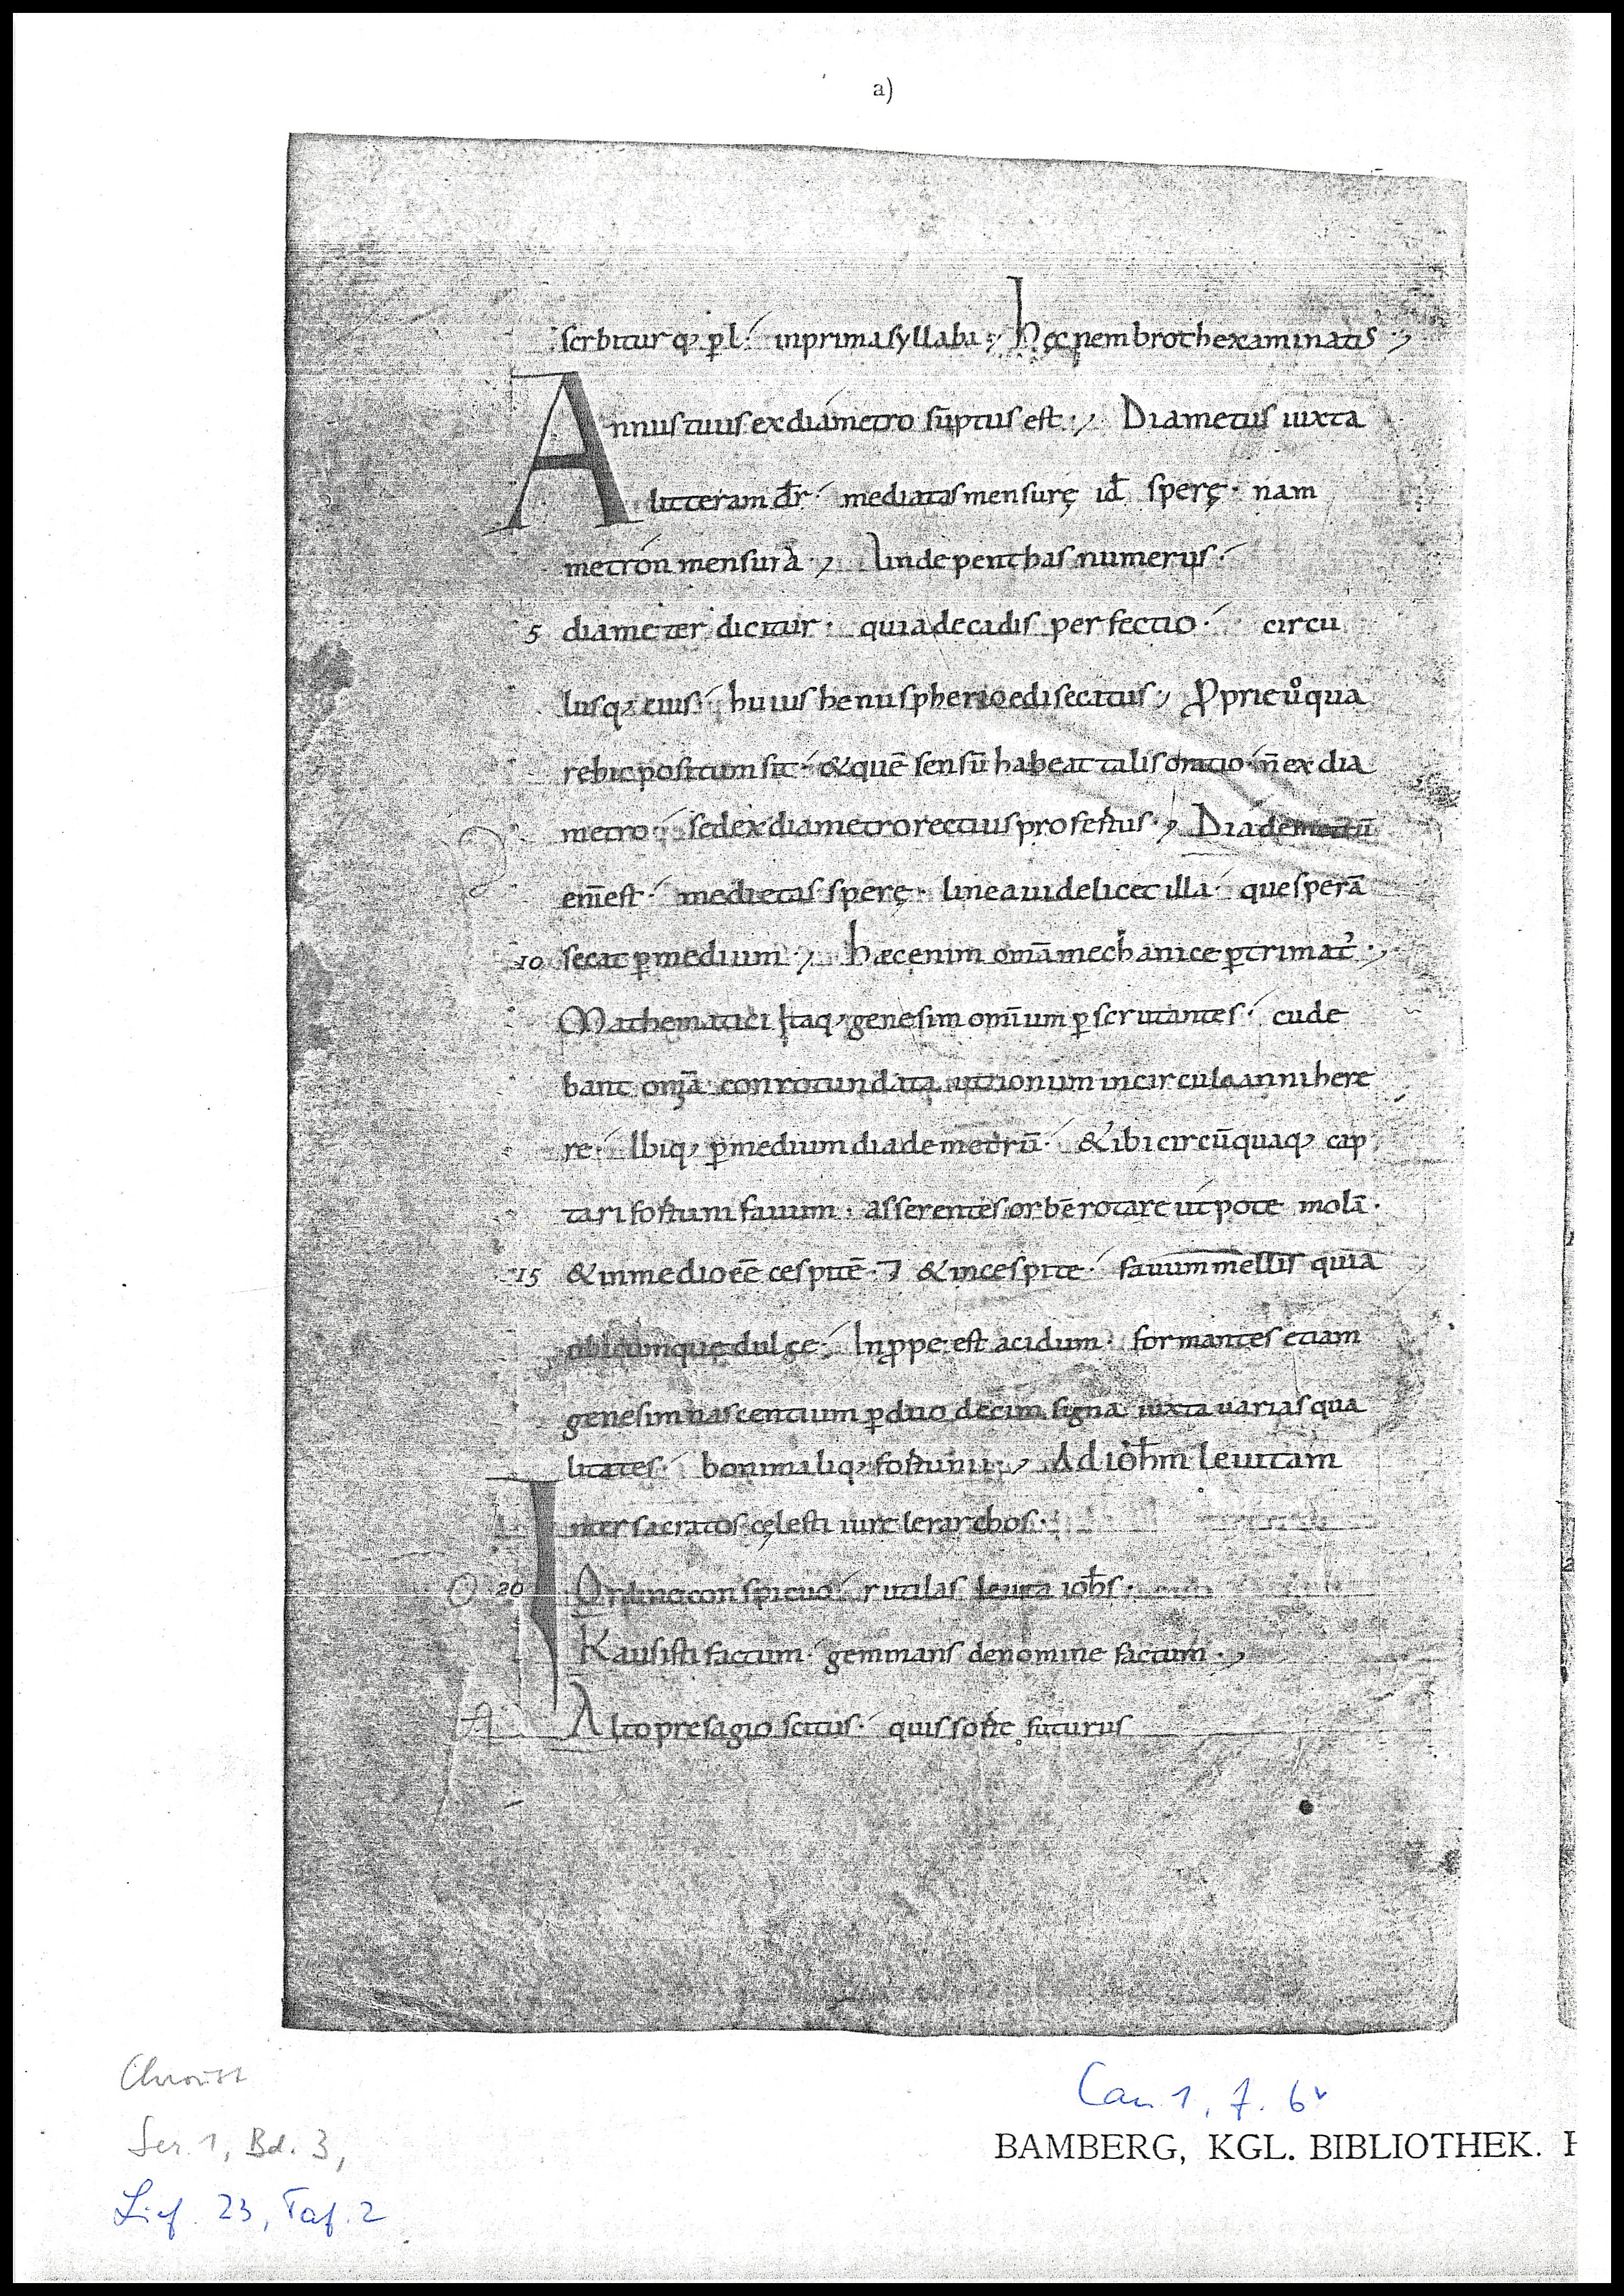 a)
scrbitur q; p̱ l·́ in prima syllaba·, Hęc nembroth examinatis·,
Annus tuus ex diámetro sūptus est·, Diametus iuxta
litteram dr̄·́ mediatas mensurę id̄ sperę· nam
metrón mensurà·, Unde penthas numerus·́
5 diameter dicitur· quia decadis perfectio·́ circu
lusq; eius·́ huius hemispherio edisecatus·, P̱pric uͦ qua
re hic positum sit·́ & quē sensū habeat talis oratio·́ n̄ ex dia
metro·́ sed ex diametro rectius profertus·, Diademetrū
eni͞ est·́ medietas sperę· linea uidelicet illa·́ que sperā
10 secat p̱ medium·, haec enim om̄a mechanice p̱trimat̉·,
Mathematici Itaq; genesim omīum p̱scrutantes·́ cude
bant om̄a conrotundata, in circulo anni here
re·́ Ibiq; p̱ medium diademetrū·́ & ibi circūquaq; cap
tari fortuni fauum· asserentes orbē rotare ut pote molā·
15 & in medio eē cespitē· ⁊ & in cespite·́ fauum mellis quia
dulce·́ In p̱ppe est acidum· formantes etiam
genesim nascentium p̱ duo decim signa iuxta uarias qua
litates·́ boni maliq; fortunii·, Ad ioh̄m leuitam
Inter sacratos cęlesti iure Ierarchos·
20 Ordine conspicuo·́ rutilas leuita ioh̄s·
Kausisti factum·́ gemmans de nomine factum·,
Alto presagio scitus·́ quis forte futurus
Chroust
Ser. 1, Bd. 3,
Lief. 23, Taf. 2
Can. 1, f. 6v
BAMBERG, KGL. BIBLIOTHEK.